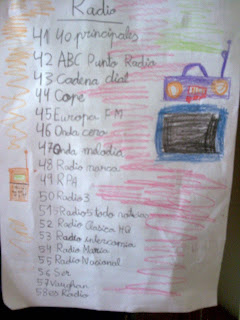 Radio
41 40 principales
42 ABC Punto Radio
43 Cadena dial
44 Cope
45 Europa FM
46 Onda cero
47 Onda melodia
48 Radio marca
49 RPA
50 Radio 3
51 Radio 5 todo noticias
52 Radio Clasica HQ
53 Radio intercomia
54 Radio Maria
55 Radio Nacional
56 Ser
57 Vaughan
58 es Radio